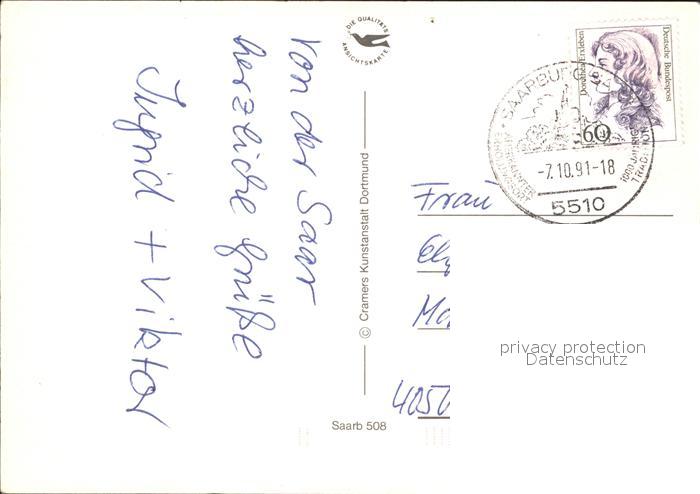 von der Saar
herzliche Grüße
Ingrid + Viktor
DIE QUALITÄTS
ANSICHTSKARTE
© Cramers Kunstanstalt Dortmund
Saarb 508
Dorothea Erxleben
Deutsche Bundespost
60
SAARBURG
1000 JÄHRIGE
TRADITION
-7.10.91-18
5510
Frau
4050
privacy protection
Datenschutz